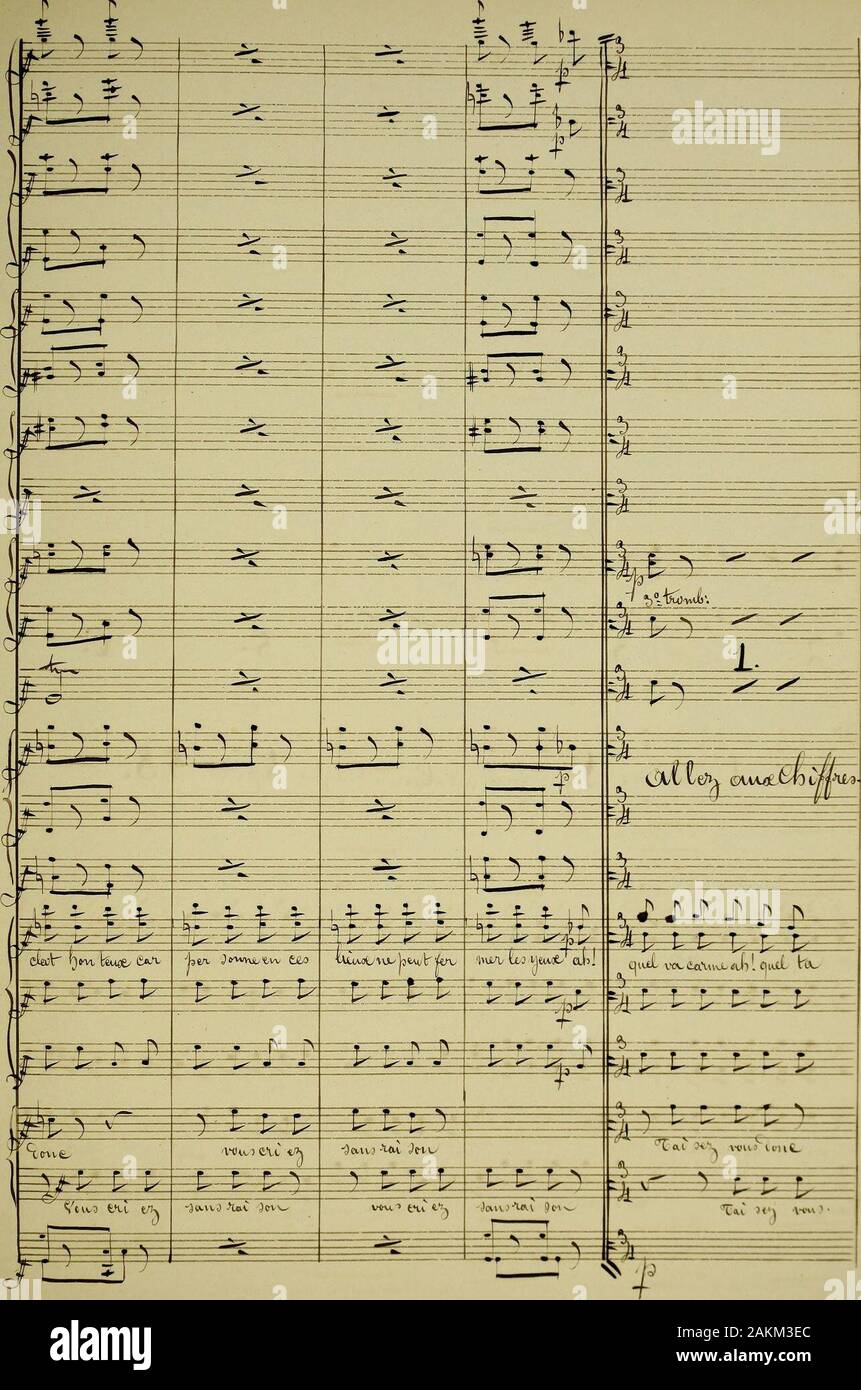 3º tromb:
1.
Allez aux Chiffres.
c'est honteux car personne en ces lieux ne peut fermer les yeux ah! quel vacarme ah! quel ta
donc vous criez sans raison Taisez vous donc
Vous criez sans raison vous criez sans raison Taisez vous.
alamy
Image ID: 2AKM3EC
www.alamy.com